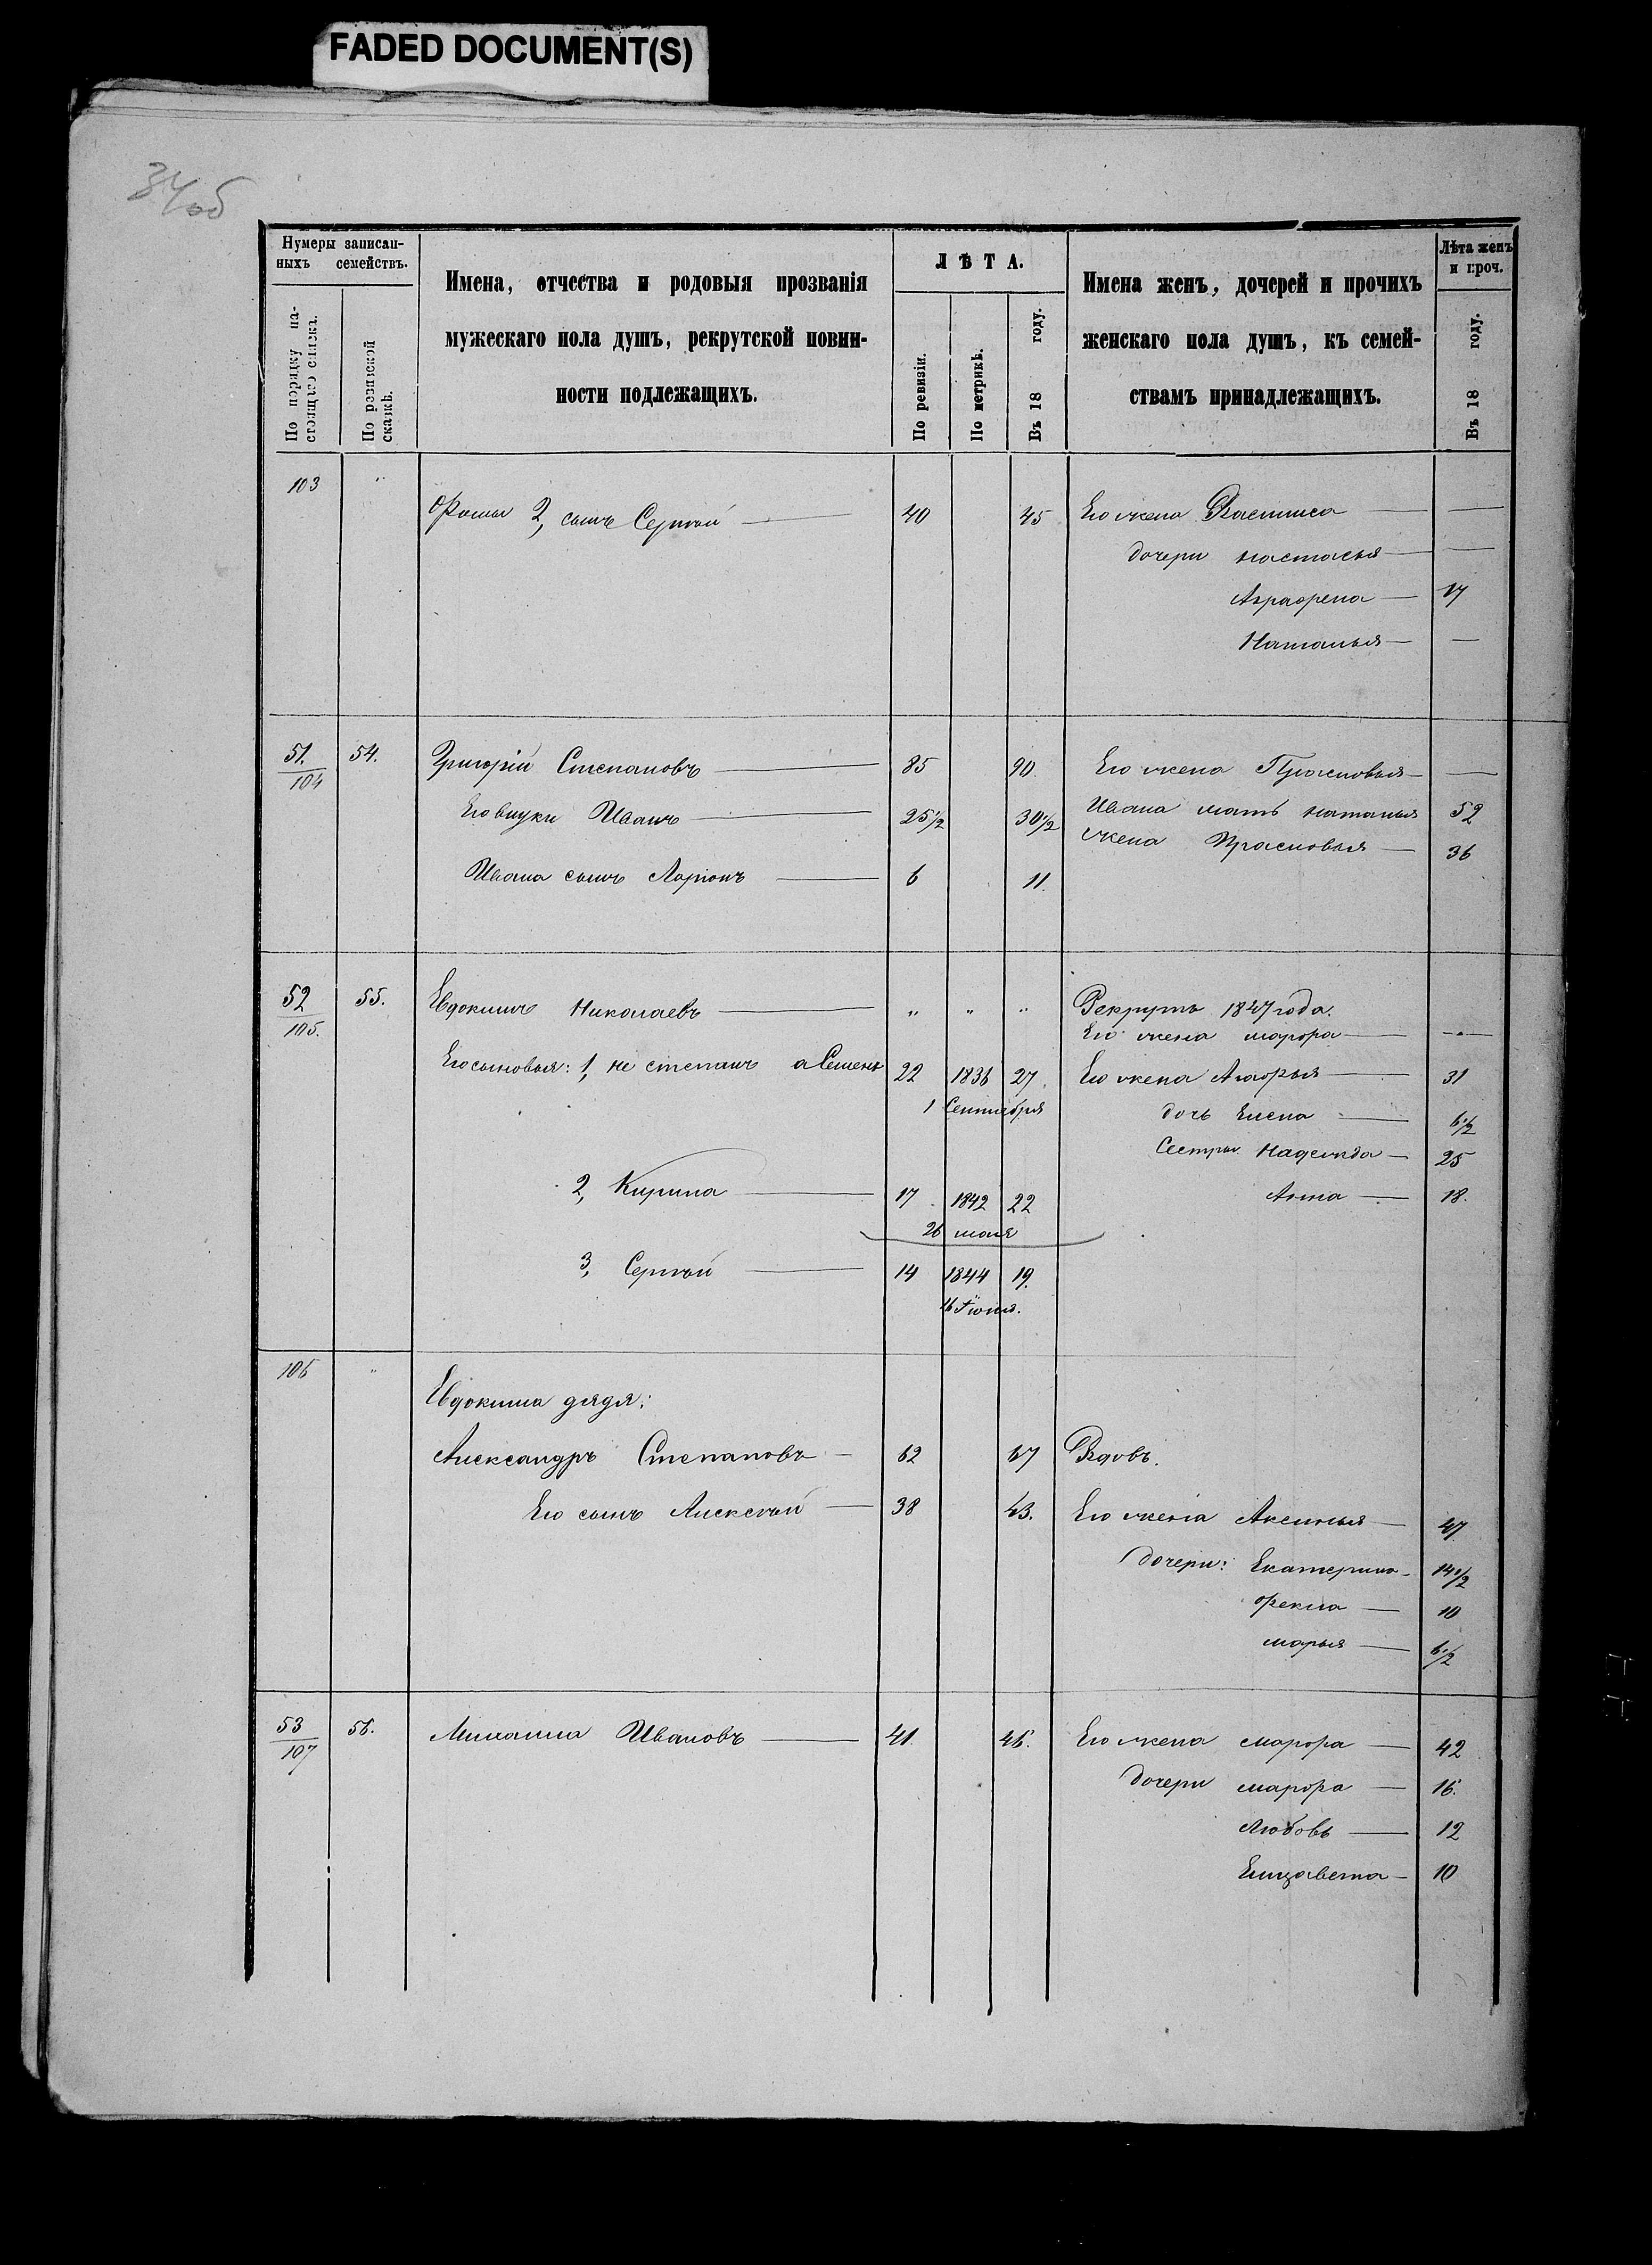 FADED DOCUMENT(S)
34об
Нумеры записан-
ныхъ семействъ.
По порядку на-
стоящаго списка.
По ревизской
сказкѣ.
Имена, отчества и родовыя прозванія
мужескаго пола душъ, рекрутской повин-
ности подлежащихъ.
ЛѢТА.
По ревизіи.
По метрикѣ.
Въ 18 году.
Имена женъ, дочерей и прочихъ
женскаго пола душъ, къ семей-
ствамъ принадлежащихъ.
Лѣта женъ
и проч.
Въ 18 году.
103 "
Фомы 2, сынъ Сергѣй — 40 45 Его жена Васлиса — —
дочери Настасья — —
Аграфена — 17
Наталья — —
51. 54. Григорій Степановъ — 85 90 Его жена Прасковья — —
104
Его внуки Иванъ — 25 1/2 30 1/2 Ивана мать Наталья 52
жена Прасковья — 36
Ивана сынъ Ларіонъ — 6 11.
52 55. Евдокимъ Николаевъ — " " " Рекрутъ 1847 года.
105. Его жена Марфа — —
Его сыновья: 1, не Степанъ а Семенъ 22 1836 27. Его жена Марья — 31
1 Сентября дочь Елена — 6 1/2
Сестры Надежда — 25
2, Кирила — 17 1842 22 Анна — 18.
26 мая
3, Сергѣй — 14 1844 19.
16 Іюня.
106 "
Евдокима дядя:
Александръ Степановъ — 62 67 Вдовъ.
Его сынъ Алексѣй — 38 43. Его жена Аксинья — 47
дочери: Екатерина — 14 1/2
Фекла — 10
Марья — 6 1/2
53 56. Михаила Ивановъ — 41. 46. Его жена Марфа — 42
107
дочери Марфа — 16.
Любовь — 12
Елизавета — 10